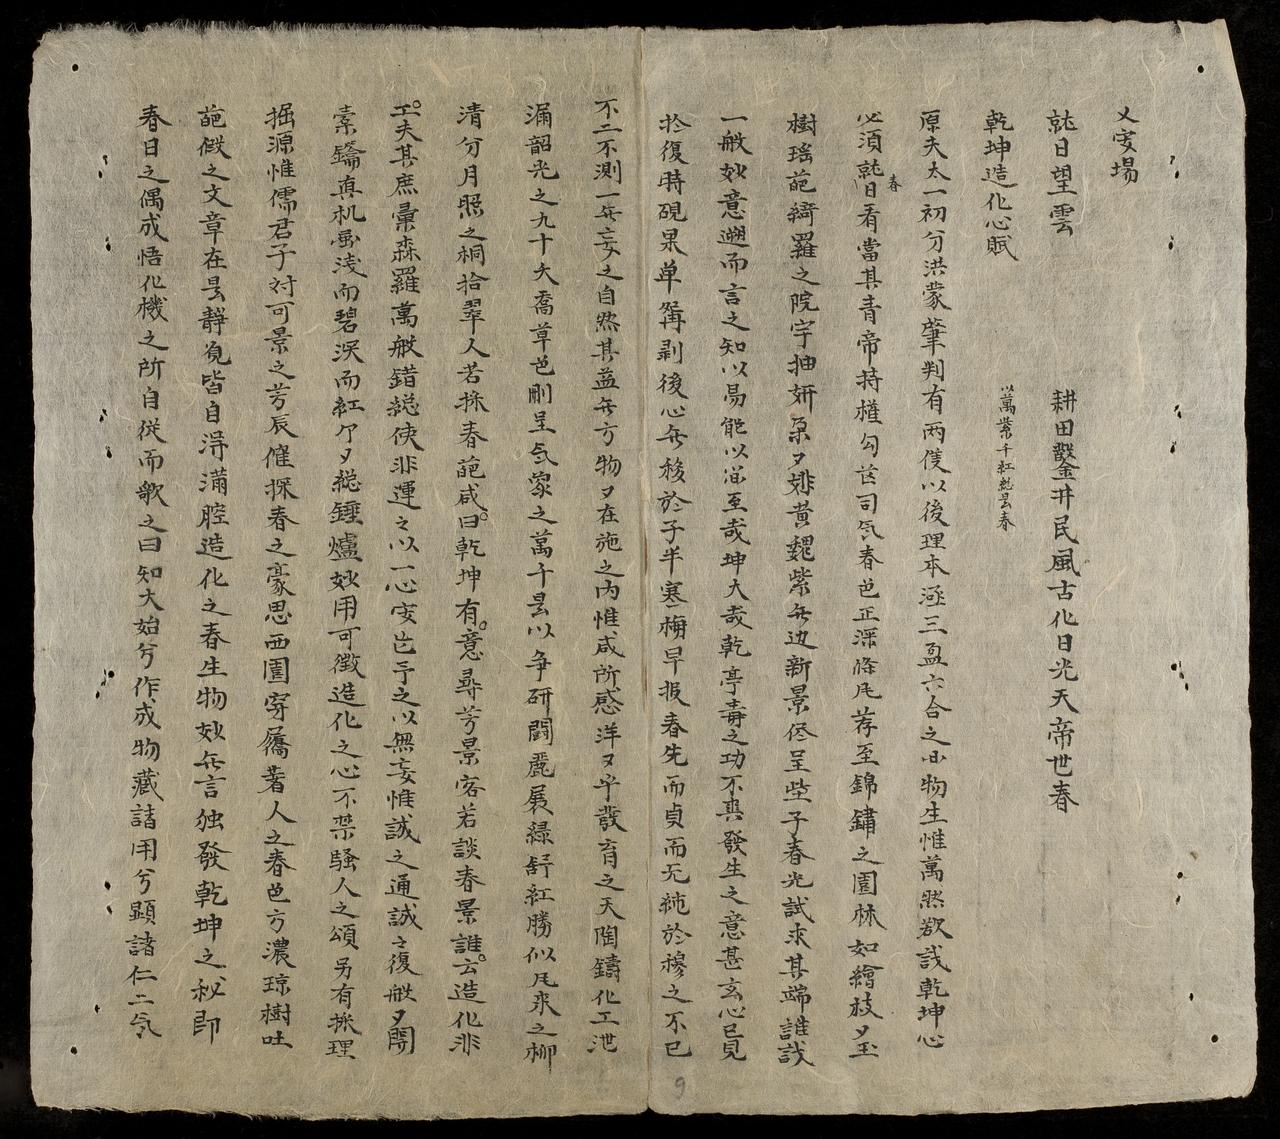 乂安場
就日望雲 耕田鑿井民風古化日光天帝世春
乾坤造化心賦 以萬紫千紅總是春
原夫太一初分洪蒙肇判有兩儀以後理本涵三盈六合之中物生惟萬然欲識乾坤心
必須就春日看當其青帝持權勾芒司氣春色正深條風荐至錦鏽之園林如繪枝々玉
樹瑤葩綺羅之院宇抽妍朶々姚黄魏紫無边新景侭呈些子春光試求其端誰識
一般妙意遡而言之知以易能以簡至哉坤大哉乾亭毒之功不爽發生之意甚玄心已見
於復時硯果单剥後心無移於子半寒梅早报春先而貞而元純於穆之不已
不二不測一無妄之自然其益無方物々在施之内惟咸所感洋々乎發育之天陶鑄化工泄
漏韶光之九十夭喬草色刪呈氣象之萬千是以争研鬪麗展緑舒紅勝似風来之柳
清分月照之桐拾翠人若採春葩咸曰乾坤有意尋芳景客若談春景誰云造化非
工夫其庶彙森羅萬般錯綜使非運之以一心安㠯予之以無妄惟誠之通誠之復般々開
橐鑰真机露浅而碧深而紅个々総錘爐妙用可徵造化之心不禁騷人之頌另有探理
掘源惟儒君子对可景之芳辰催探春之豪思西園穿屩著人之春色方濃琼樹吐
葩假之文章在是靜覓皆自淂滿腔造化之春生物妙無言独發乾坤之秘即
春日之偶成悟化機之所自從而歌之曰知大始兮作成物藏諸用兮顯諸仁二氣
9